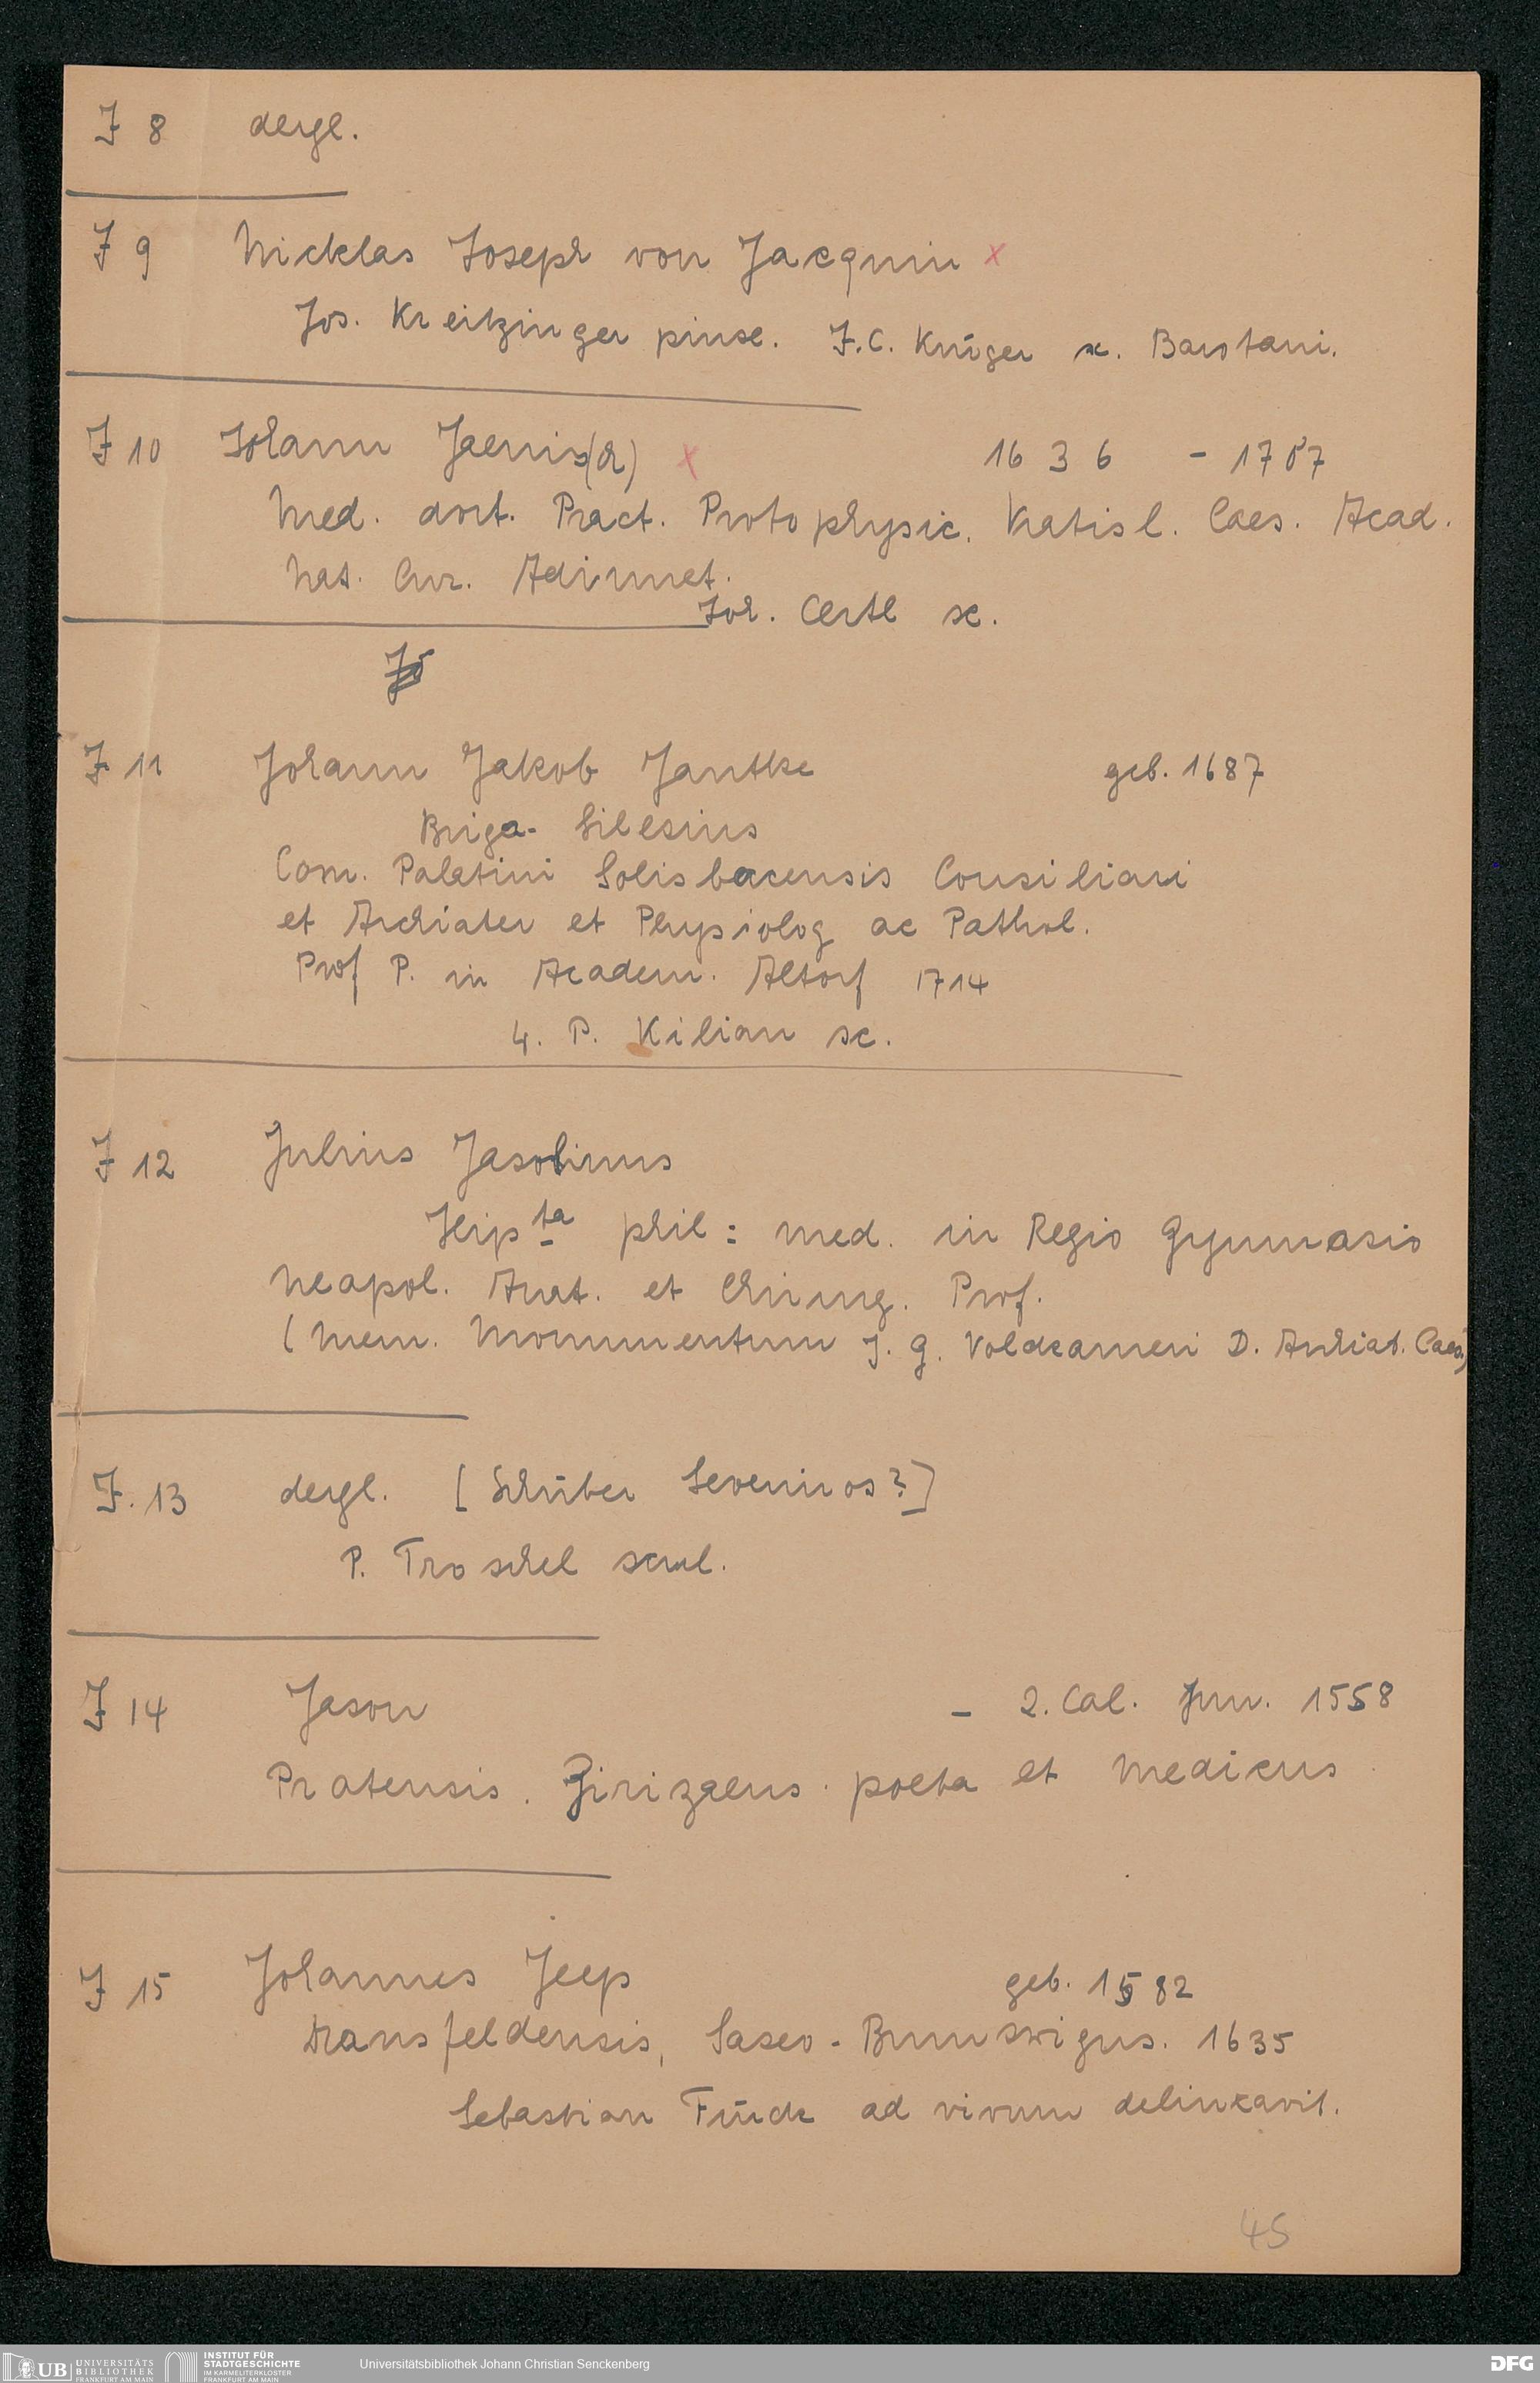 J 8 dergl.
J 9 Nicklas Joseph von Jacquin x
Jos. Kreitzinger pinx. J.C. Krüger sc. Barotani.
J 10 Johann Jaenis(ch) x 1636 - 1707
Med. doct. Pract. Protophysic. Vratisl. Caes. Acad.
Nat. Cur. Adiunct.
Joh. Oertl sc.
J 11 Johann Jakob Jantke geb. 1687
Briga-Silesius
Com. Palatini Solisbacensis Consiliari
et Archiater et Physiolog ac Pathol.
Prof P. in Academ. Altorf 1714
4. P. Kilian sc.
J 12 Julius Jasolinus
Hip ta phil: med. in Regio Gymnasio
Neapol. Anat. et Chirurg. Prof.
(Mem. Monumentum J. G. Volckameri D. Archiat. Caes.)
J. 13 dergl. [Schüber Severinos?]
P. Troschel sculp.
J 14 Jason - 2. Cal. Jun. 1558
Pratensis. Zirizaeus. poeta et medicus
J 15 Johannes Jeep geb. 1582
Dransfeldensis, Saxo-Brunswigus. 1635
Sebastian Fürck ad vivum delineavit.
45
UB UNIVERSITÄTS
BIBLIOTHEK
FRANKFURT AM MAIN
INSTITUT FÜR
STADTGESCHICHTE
IM KARMELITERKLOSTER
FRANKFURT AM MAIN
Universitätsbibliothek Johann Christian Senckenberg
DFG